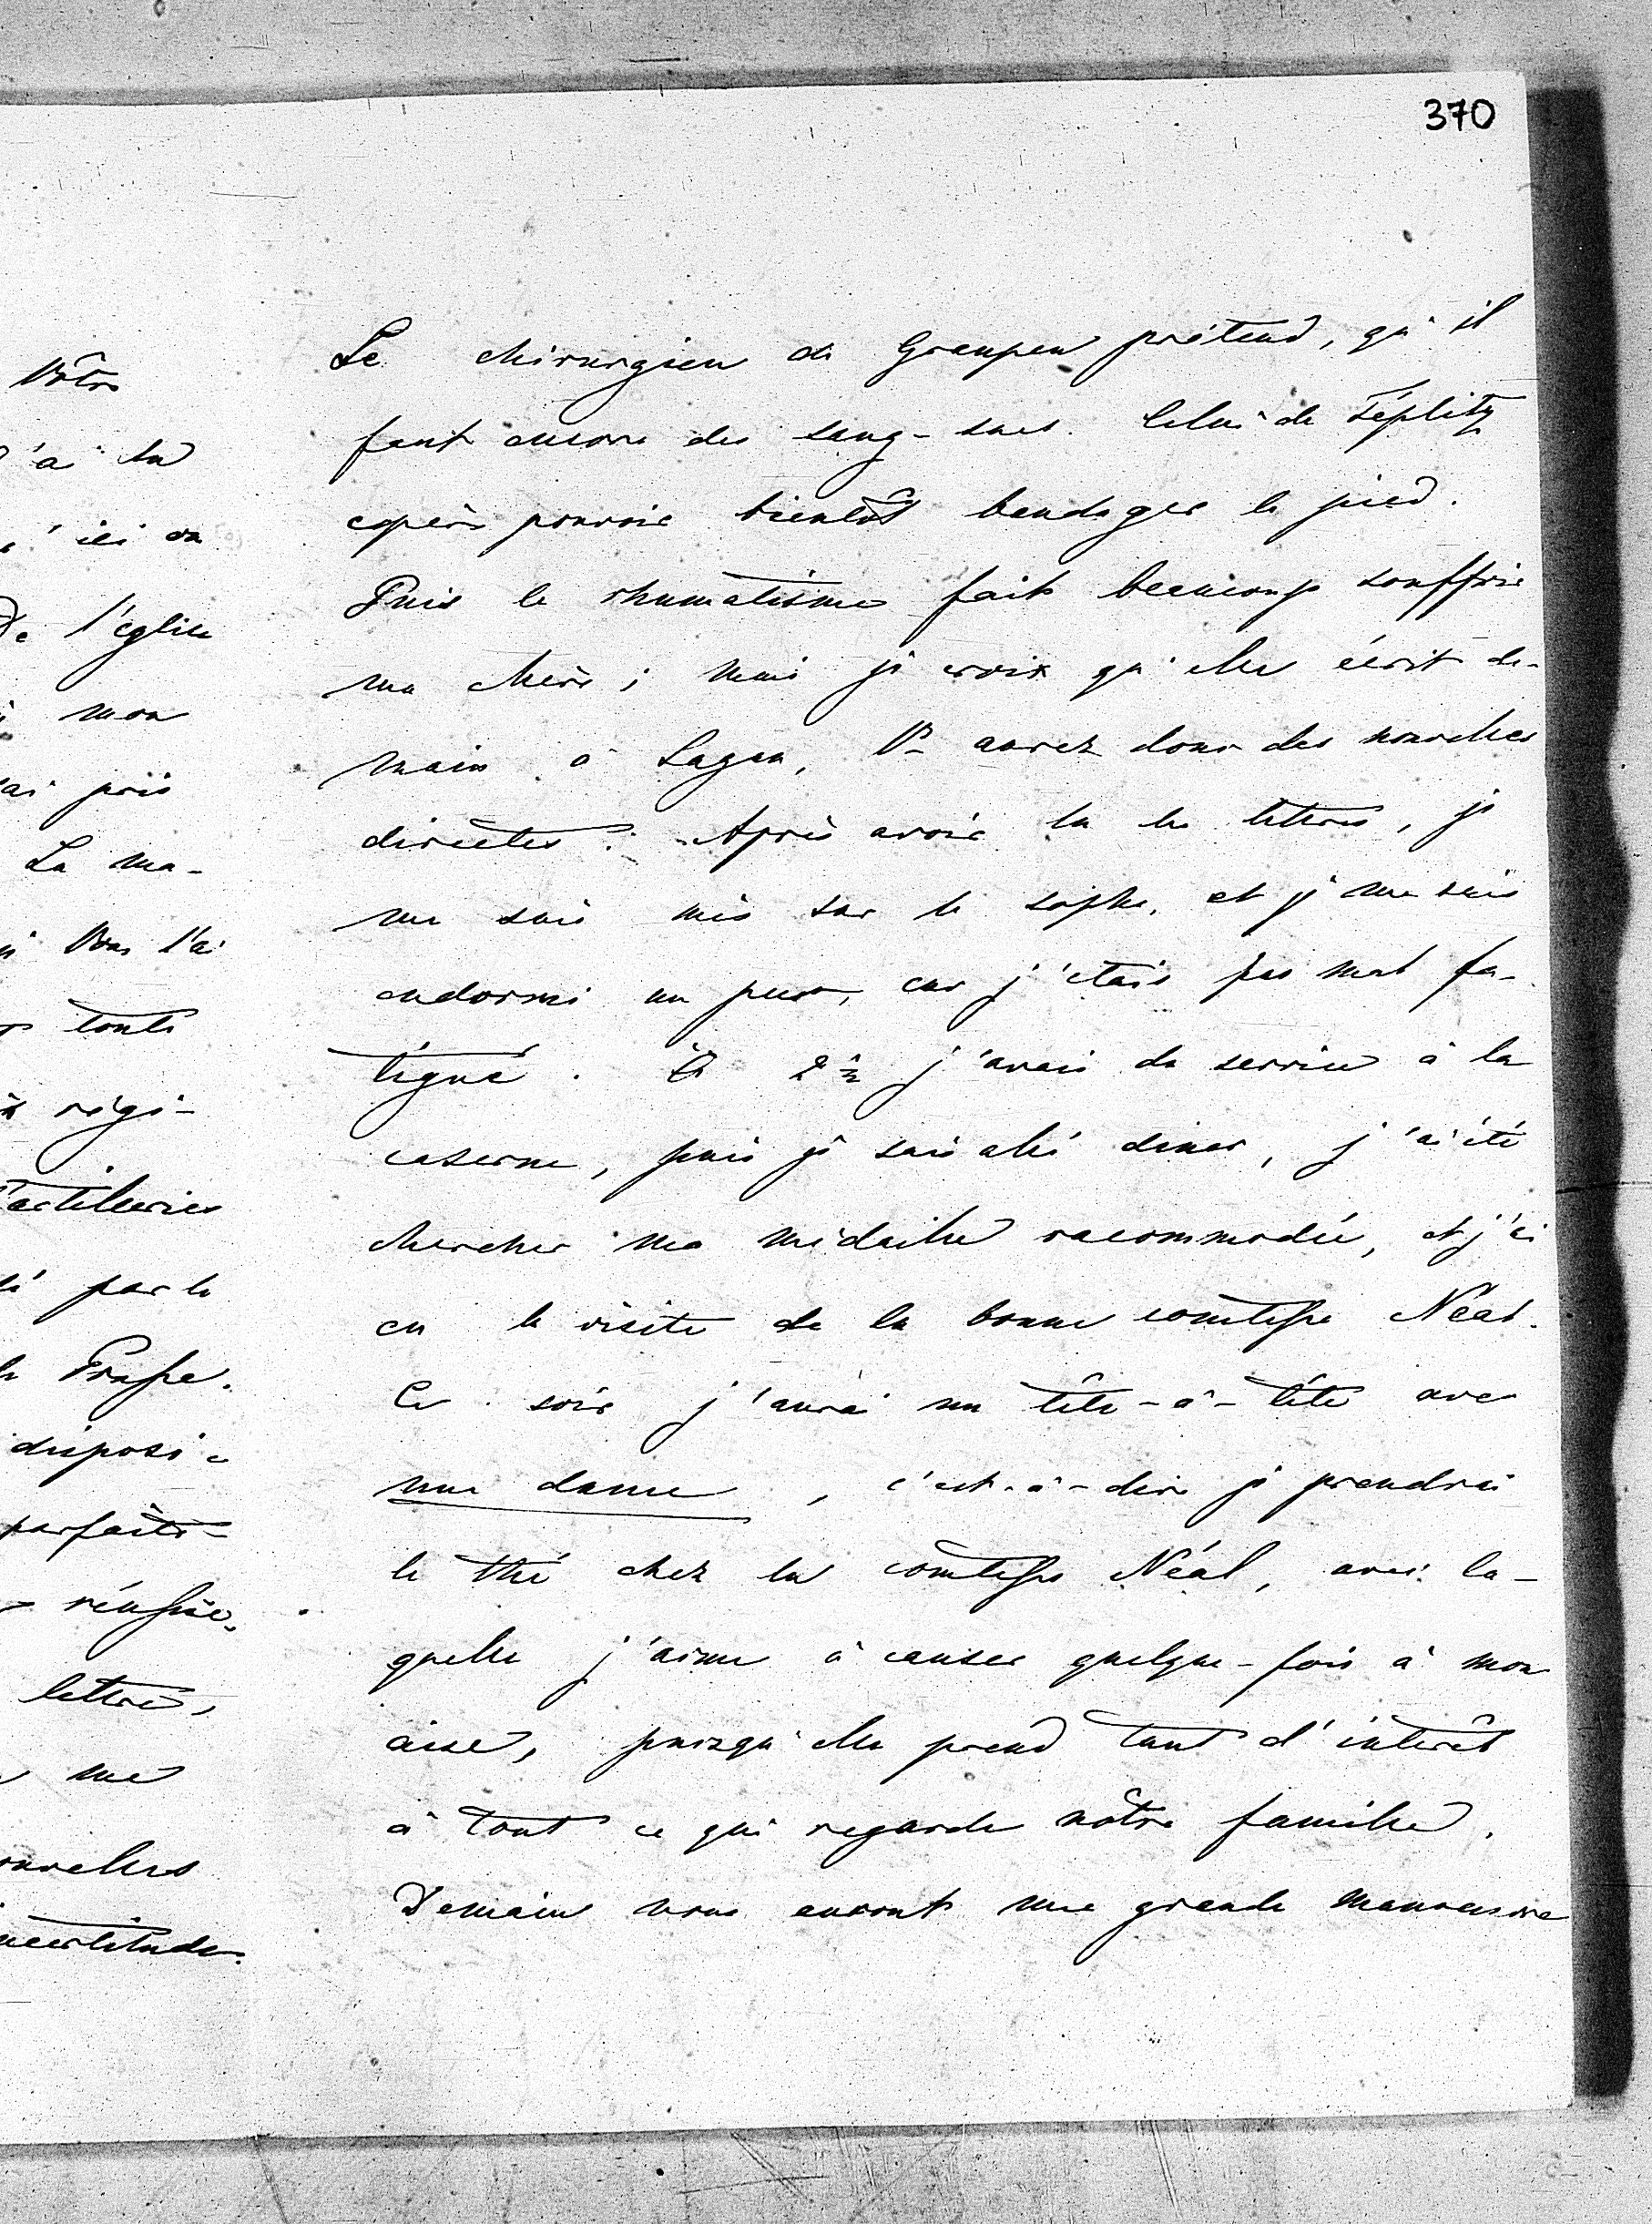 370
Le chirurgien de Graupen prétend, qu'il
faut encore des sang-sues. Celui de Téplitz
espère pouvoir bientôt bandager le pied.
Puis le rhumatisme fait beaucoup souffrir
ma chère; mais je crois qu'elle écrit de-
main à Sagan, V. aurez donc des nouvelles
directes. Après avoir lu les lettres, je
me suis mis sur le sopha, et je me suis
endormi un peu, car j'étais pas mal fa-
tigué. À 2½ j'avais du service à la
caserne, puis je suis allé diner, j'ai été
chercher ma médaille racommodée, et j'ai
eu la visite de la bonne comtesse Néal.
Ce soir j'aurai un tête-à-tête avec
une dame, c'est-à-dire je prendrai
le thé chez la comtesse Néal, avec la-
quelle j'aime à causer quelque-fois à mon
aise, puisqu'elle prend tant d'intérêt
à tout ce qui regarde nôtre famille.
Demain nous auront une grande manoeuvre
Vôtre
'a lu
'ici on
de l'église
mon
ai pris
La ma-
Vous l'ai
toute
régi-
l'artilleries
par le
Prusse.
disposi-
parfaite-
réussie.
lettre,
me
ouvelles
incertitude.